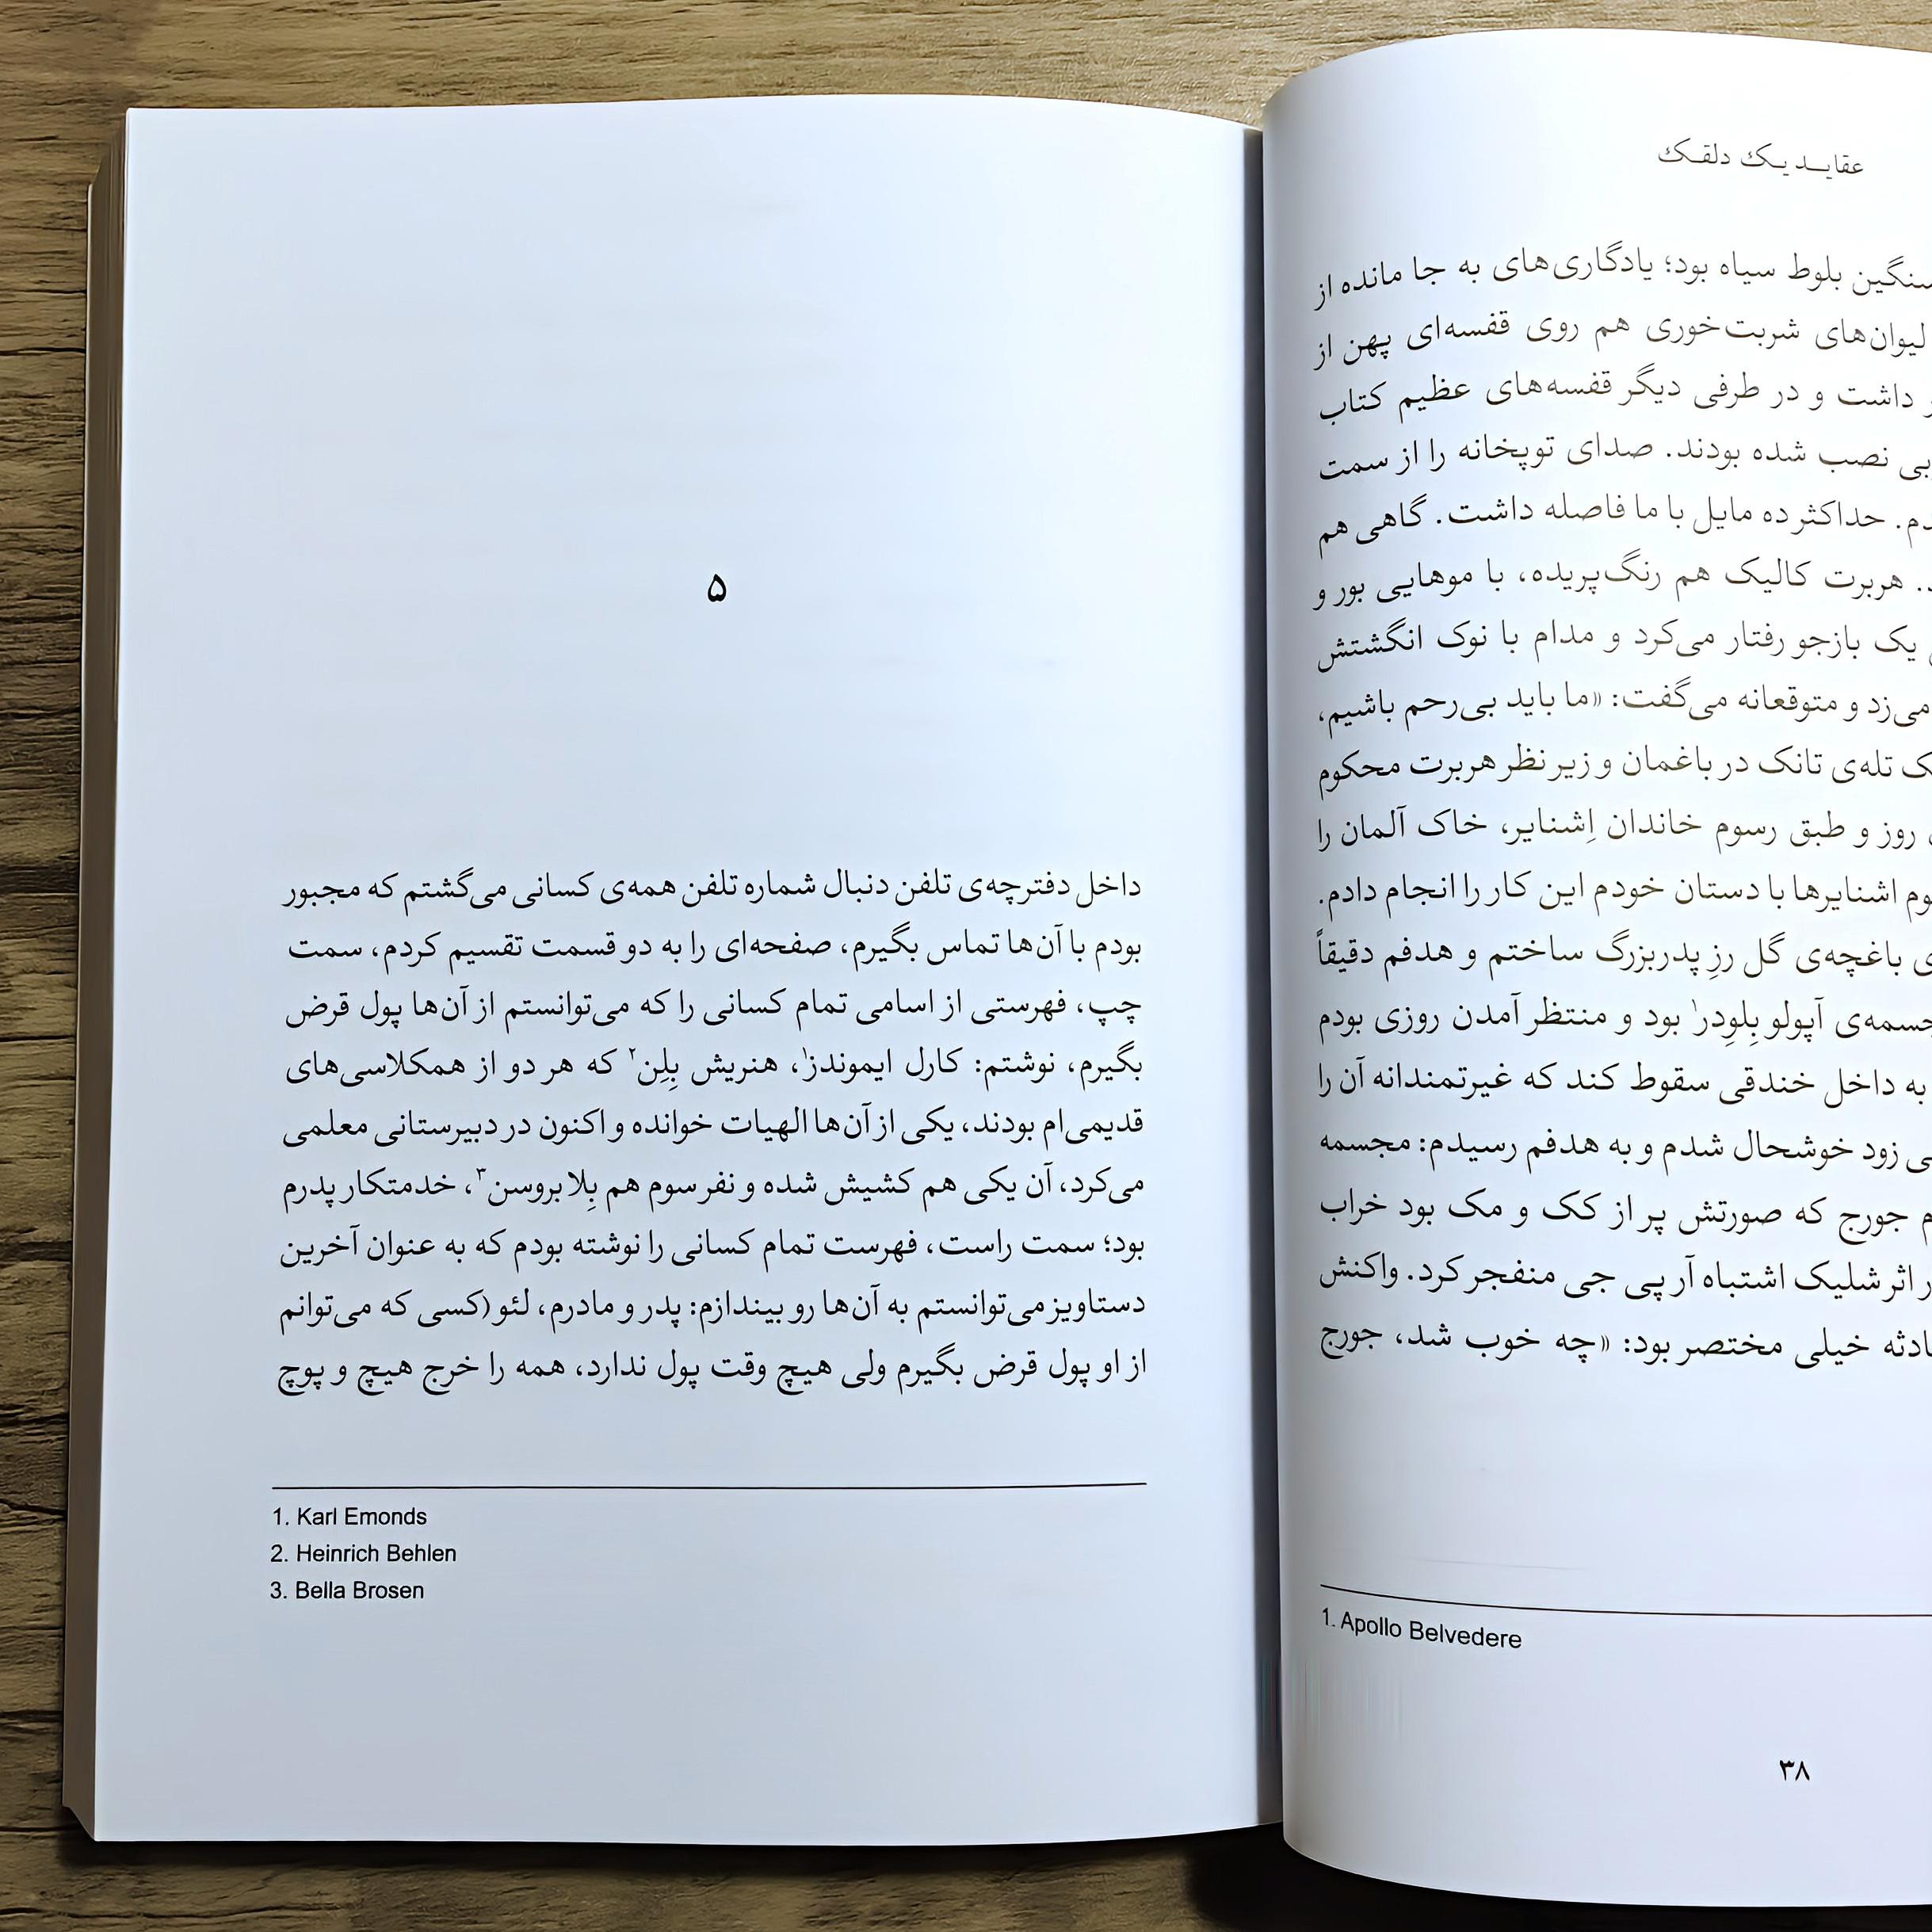 عقایـد یـک دلقـک
سنگین بلوط سیاه بود؛ یادگاری‌های به جا مانده از
لیوان‌های شربت‌خوری هم روی قفسه‌ای پهن از
داشت و در طرفی دیگر قفسه‌های عظیم کتاب
نصب شده بودند. صدای توپخانه را از سمت
حداکثر ده مایل با ما فاصله داشت. گاهی هم
هربرت کالیک هم رنگ‌پریده، با موهایی بور و
یک بازجو رفتار می‌کرد و مدام با نوک انگشتش
می‌زد و متوقعانه می‌گفت: «ما باید بی‌رحم باشیم،
تله‌ی تانک در باغمان و زیر نظر هربرت محکوم
روز و طبق رسوم خاندان اِشنایر، خاک آلمان را
اشنایرها با دستان خودم این کار را انجام دادم.
باغچه‌ی گل رزِ پدربزرگ ساختم و هدفم دقیقاً
آپولو بِلوِدر۱ بود و منتظر آمدن روزی بودم
به داخل خندقی سقوط کند که غیرتمندانه آن را
زود خوشحال شدم و به هدفم رسیدم: مجسمه
جورج که صورتش پر از کک و مک بود خراب
اثر شلیک اشتباه آر پی جی منفجر کرد. واکنش
خیلی مختصر بود: «چه خوب شد، جورج
1. Apollo Belvedere
۳۸
۵
داخل دفترچه‌ی تلفن دنبال شماره تلفن همه‌ی کسانی می‌گشتم که مجبور
بودم با آن‌ها تماس بگیرم، صفحه‌ای را به دو قسمت تقسیم کردم، سمت
چپ، فهرستی از اسامی تمام کسانی را که می‌توانستم از آن‌ها پول قرض
بگیرم، نوشتم: کارل ایموندز۱، هنریش بِلِن۲ که هر دو از همکلاسی‌های
قدیمی‌ام بودند، یکی از آن‌ها الهیات خوانده و اکنون در دبیرستانی معلمی
می‌کرد، آن یکی هم کشیش شده و نفر سوم هم بِلا بروسن۳، خدمتکار پدرم
بود؛ سمت راست، فهرست تمام کسانی را نوشته بودم که به عنوان آخرین
دستاویز می‌توانستم به آن‌ها رو بیندازم: پدر و مادرم، لئو (کسی که می‌توانم
از او پول قرض بگیرم ولی هیچ وقت پول ندارد، همه را خرج هیچ و پوچ
1. Karl Emonds
2. Heinrich Behlen
3. Bella Brosen